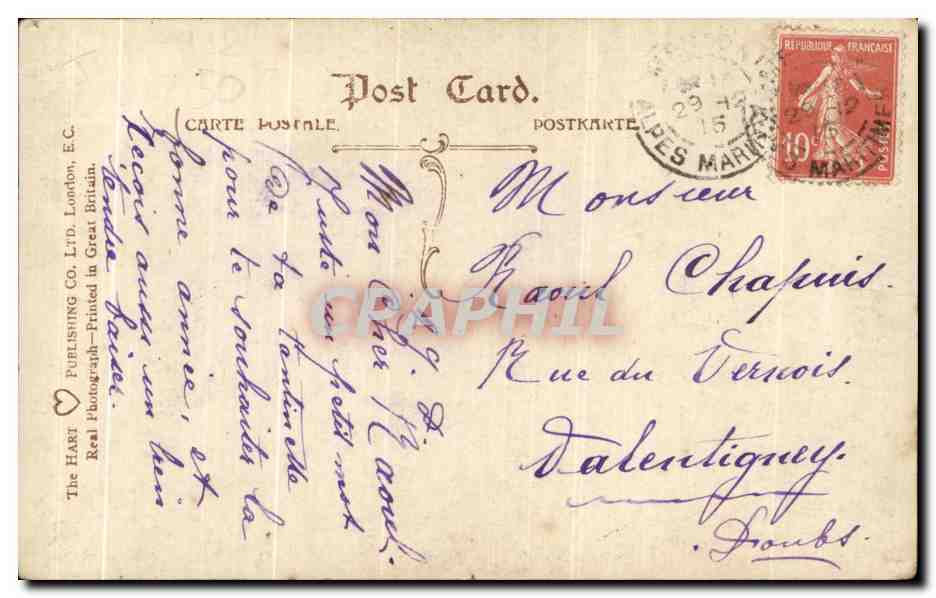 Post Card.
CARTE POSTALE. POSTKARTE
RÉPUBLIQUE FRANÇAISE
10
POSTES
29-12
15
ALPES MARITIMES
The HART PUBLISHING CO. LTD. London, E.C.
Real Photograph—Printed in Great Britain.
Mon cher Raoul.
Juste un petit mot
de ta tantine
pour te souhaiter la
bonne année, et
reçois aussi un bien
tendre baiser.
Monsieur
Raoul Chapuis.
Rue du Vernois.
Valentigney.
Doubs.
CRAPHIL